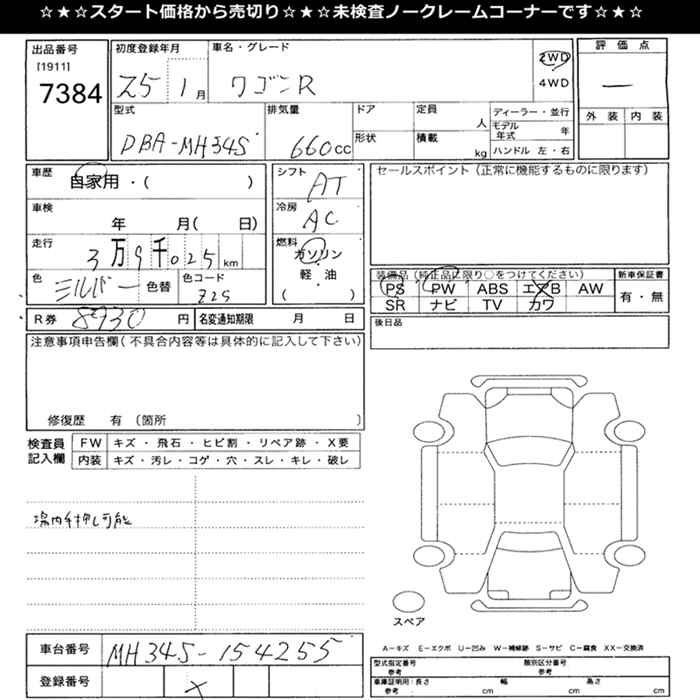 ☆★☆★スタート価格から売切り☆★☆★未検査ノークレームコーナーです☆★☆★
出品番号
[1911]
7384
初度登録年月
25 1月
車名・グレード
ワゴンR
2WD
4WD
評価点
ー
外装 内装
型式
DBA-MH34S
排気量
660cc
ドア
形状
定員
人
積載
kg
ディーラー・並行
モデル年式 年
ハンドル 左・右
車歴
自家用・( )
車検
年 月( 日)
走行
3万9千025km
色
シルバー
色替
色コード
Z2S
シフト
AT
冷房
AC
燃料
ガソリン
・
軽油
( )
セールスポイント(正常に機能するものに限ります)
装備品(純正品に限り○をつけてください)
PS PW ABS エアB AW
SR ナビ TV カワ
新車保証書
有・無
R券 8930円
名変通知期限 月 日
後日品
注意事項申告欄(不具合内容等は具体的に記入して下さい)
修復歴 有 (箇所 )
検査員記入欄
FW キズ・飛石・ヒビ割・リペア跡・X要
内装 キズ・汚レ・コゲ・穴・スレ・キレ・破レ
場内手押し可能
スペア
車台番号
MH34S-154255
登録番号
×
A-キズ E-エクボ U-凹み W-補修跡 S-サビ C-腐食 XX-交換済
型式指定番号
参考
類別区分番号
参考
車庫証明用:長さ 幅 高さ
参考 cm cm cm